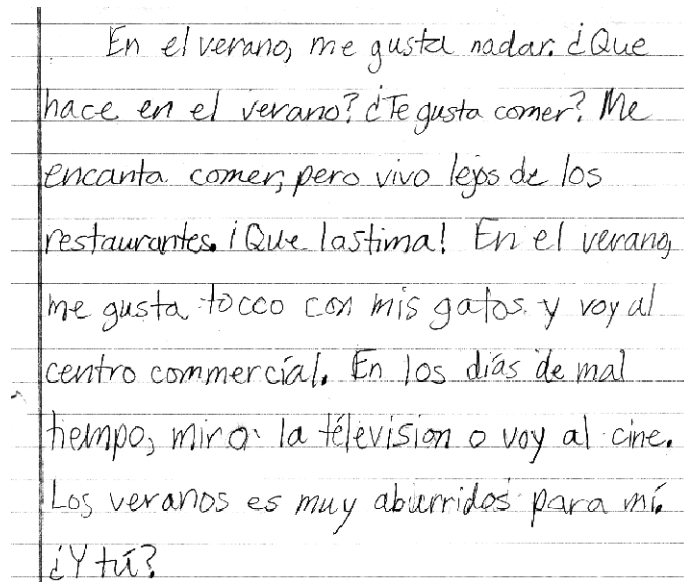 En el verano, me gusta nadar. ¿Que
hace en el verano? ¿Te gusta comer? Me
encanta comer, pero vivo lejos de los
restaurantes. ¡Que lastima! En el verano,
me gusta tocco con mis gatos y voy al
centro commercial. En los días de mal
tiempo, miro la télevision o voy al cine.
Los veranos es muy aburridos para mí.
¿Y tú?